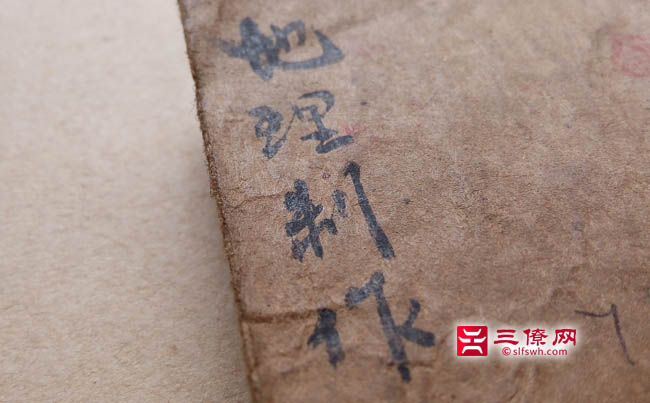 地理制作
三僚网
©slfswh.com